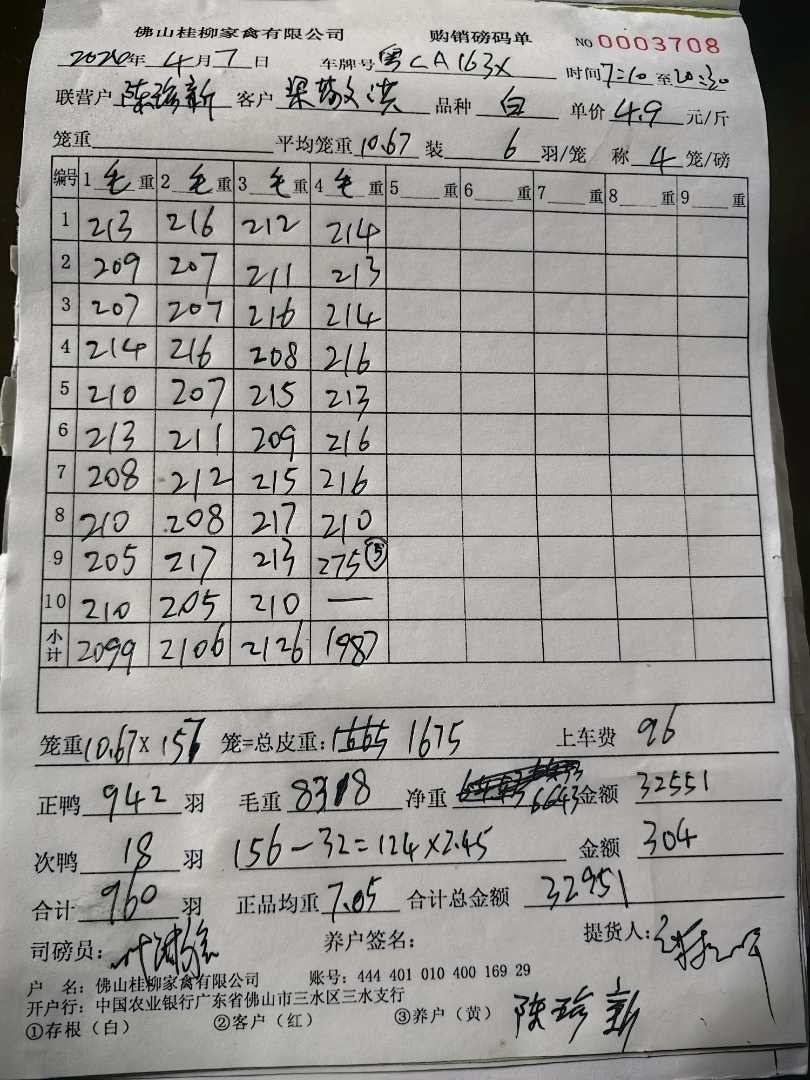 佛山桂柳家禽有限公司 购销磅码单 NO 0003708
2020年 4月 7日 车牌号 粤CA163X 时间7:10至20:30
联营户 陈珍新 客户 梁 洪 品种 白 单价 4.9 元/斤
笼重 平均笼重 10.67 装 6 羽/笼 称 4 笼/磅
编号 1 毛 重 2 毛 重 3 毛 重 4 毛 重 5 重 6 重 7 重 8 重 9 重
1 213 216 212 214
2 209 207 211 213
3 207 207 216 214
4 214 216 208 216
5 210 207 215 213
6 213 211 209 216
7 208 212 215 216
8 210 208 217 210
9 205 217 213 275 ⑤
10 210 205 210 —
小计 2099 2106 2126 1987
笼重 10.67 x 157 笼=总皮重: 1665 1675 上车费 96
正鸭 942 羽 毛重 8318 净重 6643 金额 32551
次鸭 18 羽 156-32=124×2.45 金额 304
合计 960 羽 正品均重 7.05 合计总金额 32951
司磅员: 叶 养户签名: 提货人:
户 名: 佛山桂柳家禽有限公司 账号: 444 401 010 400 169 29
开户行: 中国农业银行广东省佛山市三水区三水支行
①存根（白） ②客户（红） ③养户（黄） 陈珍新